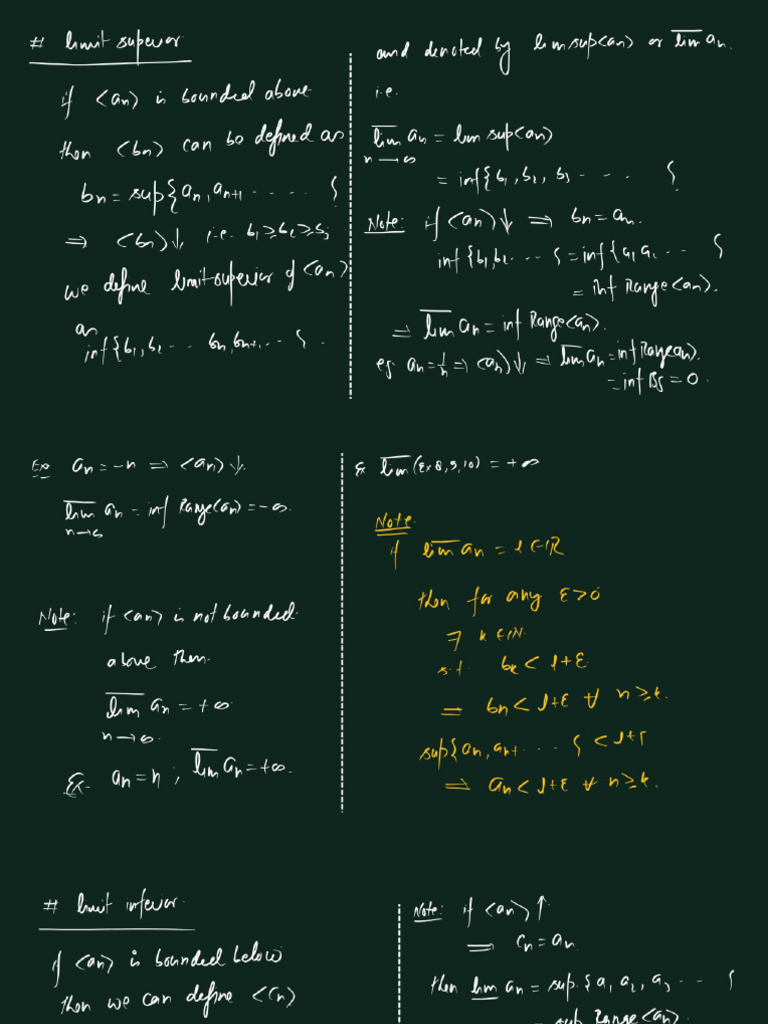 # limit superior
if <an> is bounded above
then <bn> can be defined as
bn = sup{an, an+1 ..... }
⇒ <bn>↓ i.e. b1≥b2≥b3
we define limit superior of <an>
as
inf{b1, b2 ... bn, bn+1 ... }.
and denoted by lim sup<an> or lim̅ an.
i.e.
lim̅ an = lim sup<an>
n→∞
= inf{b1, b2, b3 .... }
Note: if <an>↓ ⇒ bn = an.
inf{b1, b2 ... } = inf{a1, a2 ... }
= inf Range<an>.
⇒ lim̅ an = inf Range<an>.
eg an = 1/n ⇒ <an>↓ ⇒ lim̅ an = inf Range<an>
= inf = 0.
Ex an = -n ⇒ <an>↓.
lim̅ an = inf Range<an> = -∞.
n→∞
Note: if <an> is not bounded
above then.
lim̅ an = +∞
n→∞.
Ex. an = n ; lim̅ an = +∞.
Ex lim̅ = +∞
Note
if lim̅ an = l ∈ ℝ
then for any ε>0
∃ k ∈ ℕ.
s.t. bk < l+ε.
⇒ bn < l+ε ∀ n≥k.
sup{an, an+1 .... } < l+ε
⇒ an < l+ε ∀ n≥k.
# limit inferior.
if <an> is bounded below
then we can define <cn>
Note: if <an>↑
⇒ cn = an.
then lim an = sup.{a1, a2, a3 ... }
= sup Range<an>.